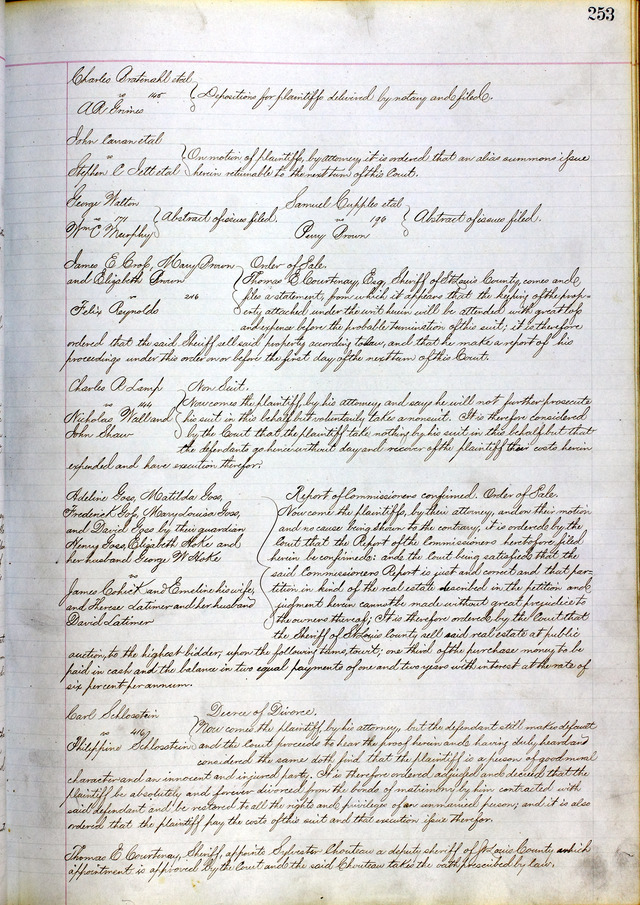 253
Charles Bratenahl et al
vs 145 Depositions for plaintiffs delivered by notary and filed.
A R Grimes
John Curran et al
vs On motion of plaintiffs, by attorney, it is ordered that an alias summons issue
Stephen C Jett et al herein returnable to the next term of this Court.
George Walton Samuel Cupples et al
vs 171 Abstract of issues filed. vs 196 Abstract of issues filed.
Wm C Murphy Perry Brown
James E Cross, Mary Brown Order of Sale.
and Elizabeth Brown Thomas E Courtenay, Esq, Sheriff of St Louis County, comes and
vs 216 files a statement, from which it appears that the keeping of the prop-
Felix Reynolds erty attached under the writ herein will be attended with great loss
and expense before the probable termination of this suit; it is therefore
ordered that the said Sheriff sell said property according to law, and that he make a report of his
proceedings under this order on or before the first day of the next term of this Court.
Charles P Lamp Non Suit.
vs 144 Now comes the plaintiff by his attorney and says he will not further prosecute
Nicholas Wall and his suit in this behalf but voluntarily takes a nonsuit. It is therefore considered
John Shaw by the Court that the plaintiff take nothing by his suit in this behalf but that
the defendants go hence without day and recover of the plaintiff their costs herein
expended and have execution therefor.
Adeline Goss, Matilda Goss, Report of Commissioners confirmed. Order of Sale.
Frederick Goss, Mary Louisa Goss, Now come the plaintiffs, by their attorney, and on their motion
and David Goss by their guardian and no cause being shown to the contrary, it is ordered by the
Henry Goss, Elizabeth Hoke and Court that the Report of the Commissioners heretofore filed
her husband George W Hoke herein be confirmed: and the Court being satisfied that the
vs said Commissioners Report is just and correct and that par-
James Cohick and Emeline his wife, tition in kind of the real estate described in the petition and
and Therese Latimer and her husband judgment herein cannot be made without great prejudice to
David Latimer the owners thereof; It is therefore ordered by the Court that
the Sheriff of St Louis County, sell said real estate at public
auction, to the highest bidder, upon the following terms, towit; one third of the purchase money to be
paid in cash and the balance in two equal payments of one and two years with interest at the rate of
six percent per annum.
Carl Schlosstein Decree of Divorce.
vs Now comes the plaintiff by his attorney, but the defendant still makes default
Philippine Schlosstein and the Court proceeds to hear the proof herein and having duly heard and
considered the same doth find that the plaintiff is a person of good moral
character and an innocent and injured party. It is therefore ordered adjudged and decreed that the
plaintiff be absolutely and forever divorced from the bonds of matrimony by him contracted with
said defendant and be restored to all the rights and privileges of an unmarried person; and it is also
ordered that the plaintiff pay the costs of this suit and that execution issue therefor.
Thomas E Courtenay, Sheriff, appoints Sylvester Chouteau a deputy sheriff of St Louis County which
appointment is approved by the Court and the said Chouteau takes the oath prescribed by law.